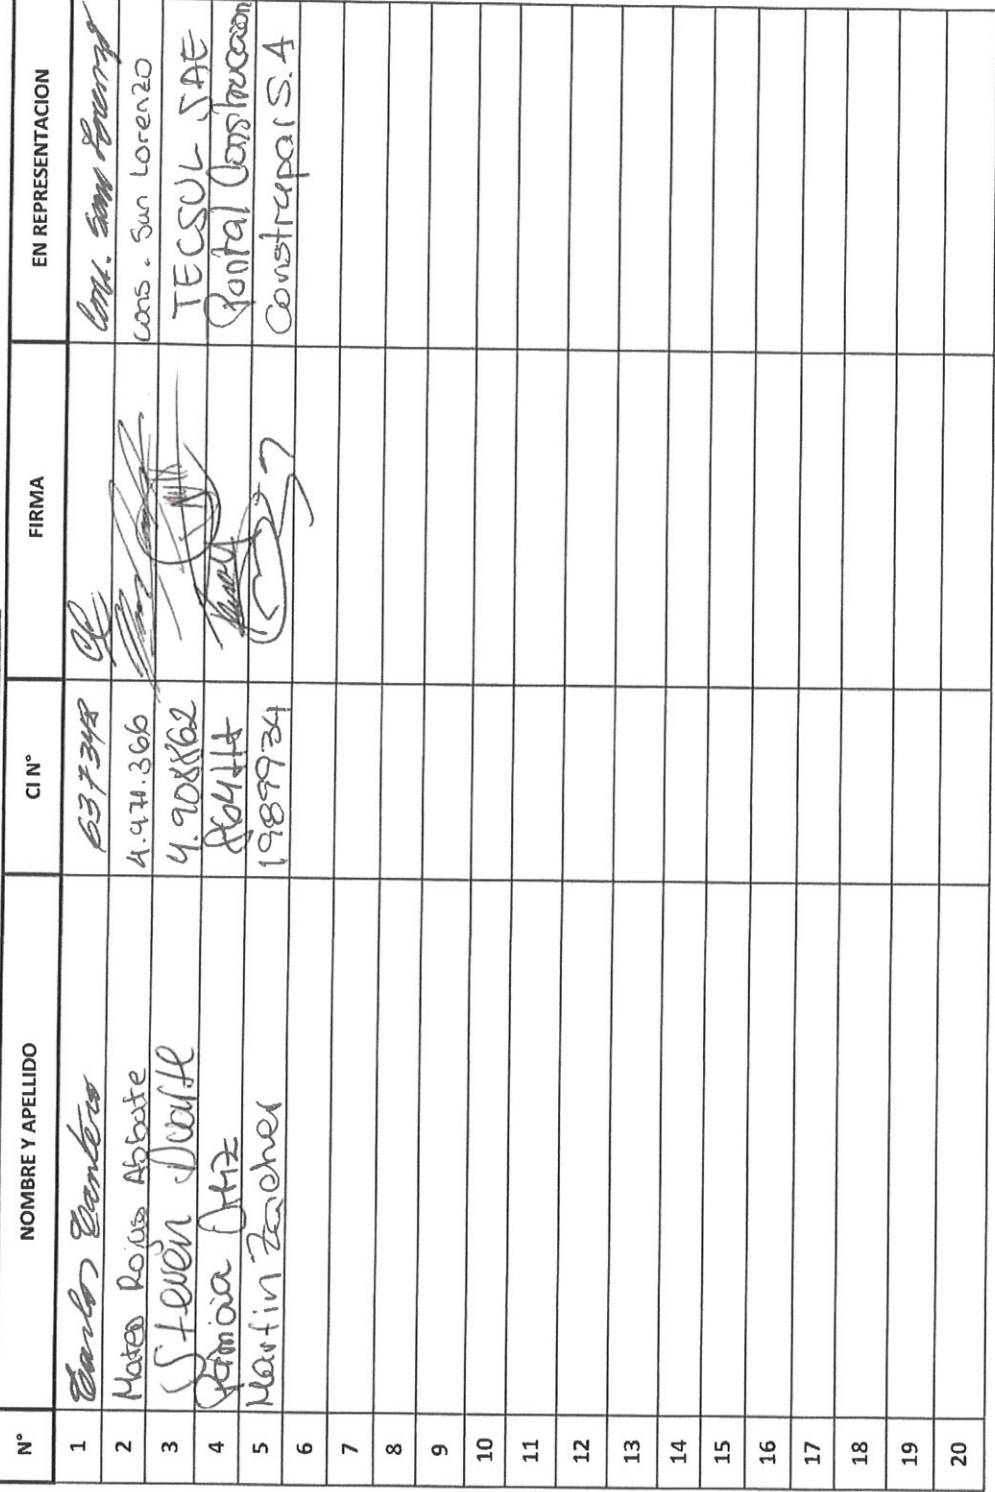 N° NOMBRE Y APELLIDO CI N° FIRMA EN REPRESENTACION
1 Carlos Cantero 637348 Cons. San Lorenzo
2 Mateo Rojas Abbate 4.971.366 Cons. San Lorenzo
3 Steven Duarte 4.908862 TECSUL SAE
4 Patricia Ortiz Pontal Construccion
5 Martin Zaicher 1989934 Construpar S.A
6
7
8
9
10
11
12
13
14
15
16
17
18
19
20